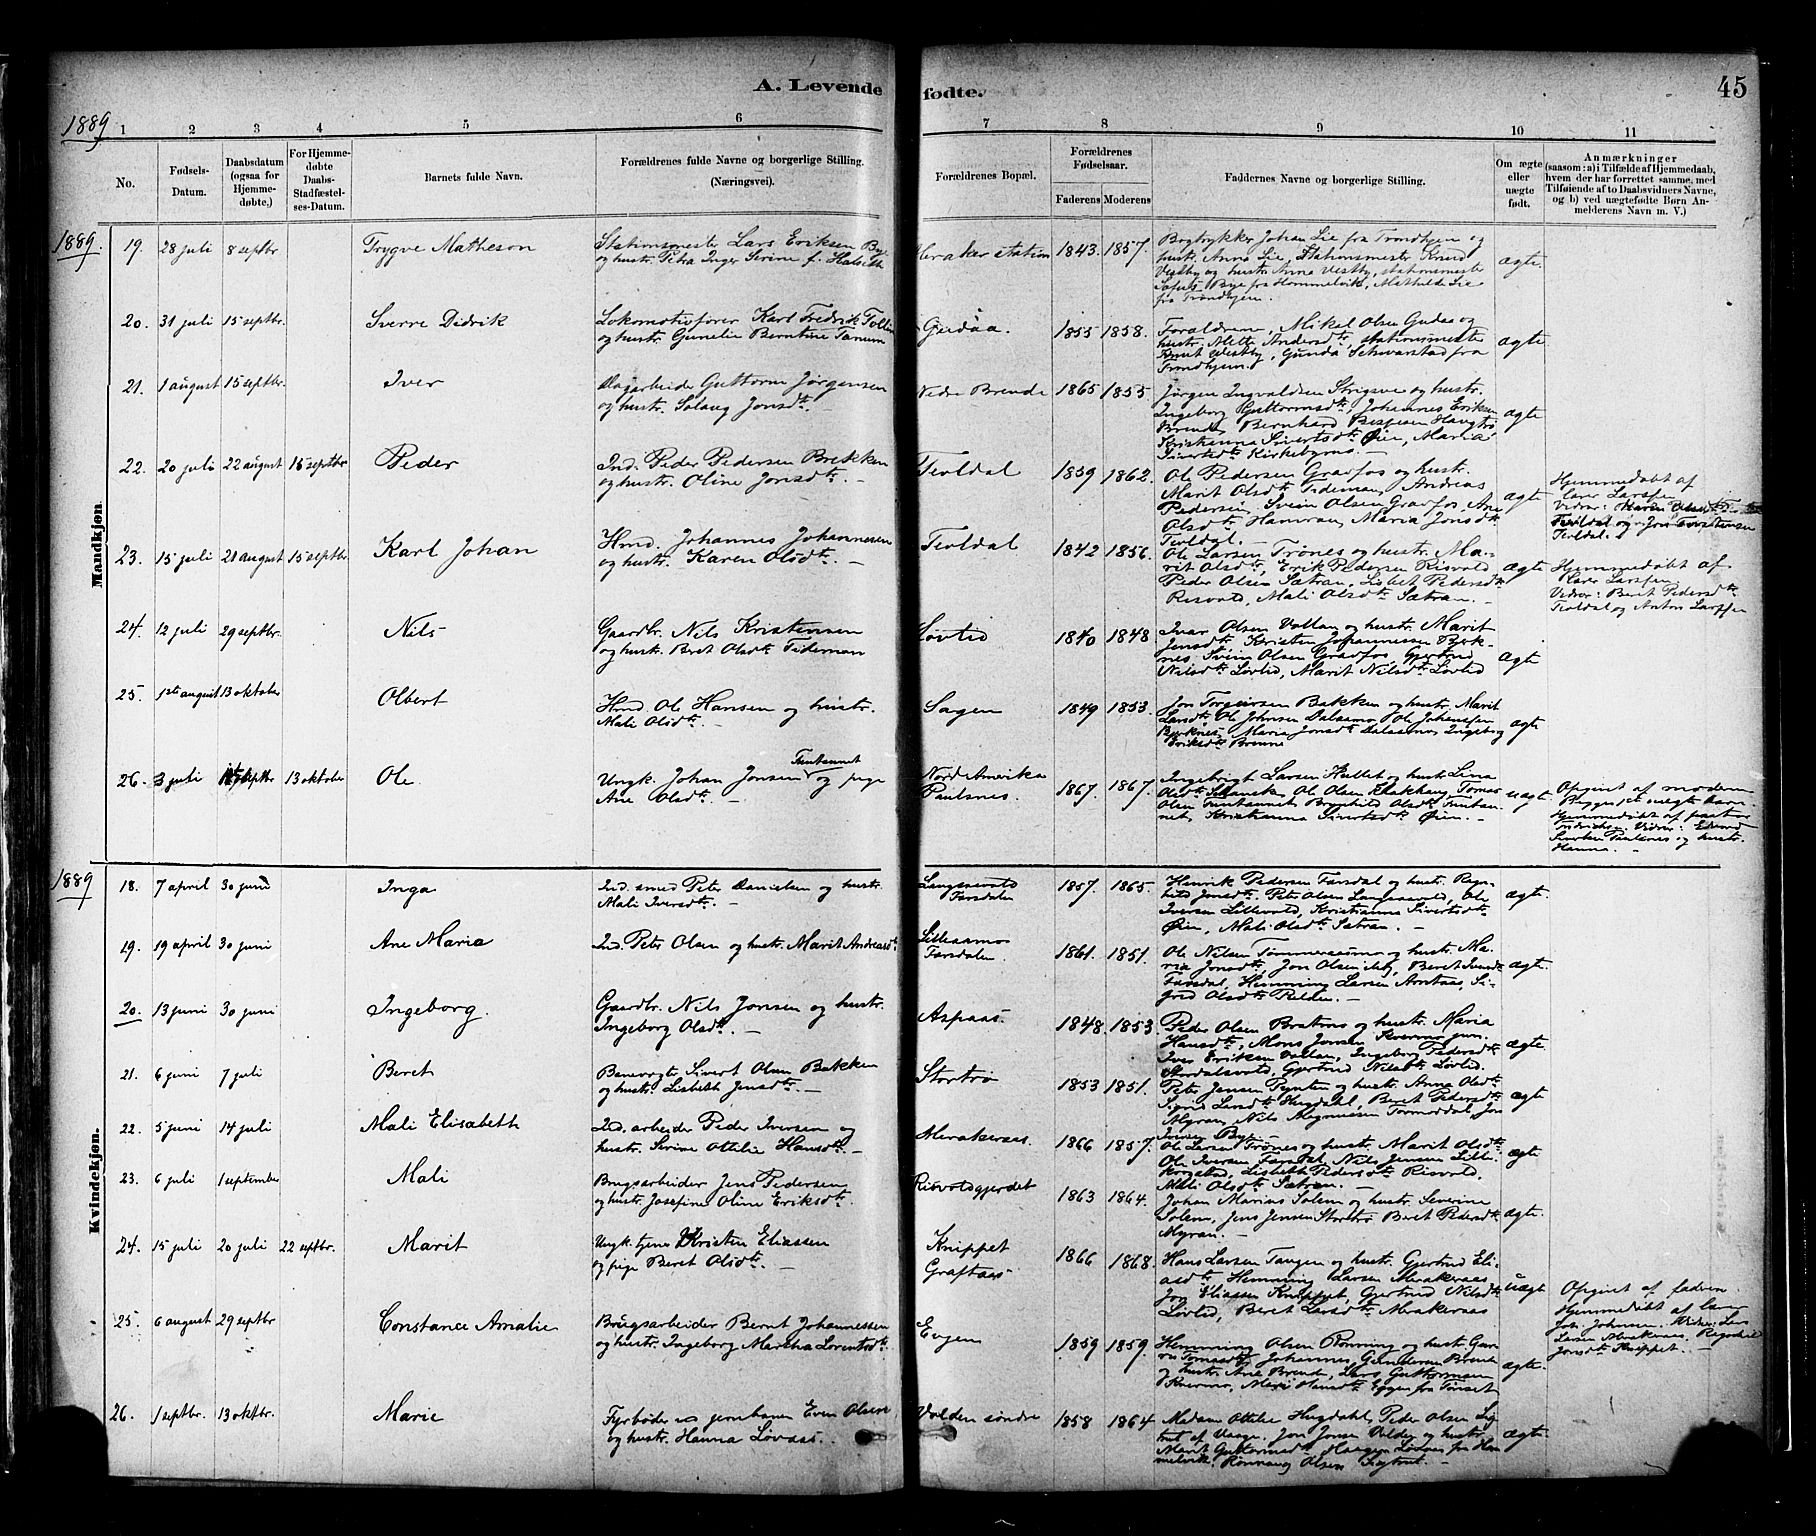 A. Levende
fødte.
45
1889
1 2 3 4 5 6 7 8 9 10 11
No.
Fødsels-
Datum.
Daabsdatum
(ogsaa for
Hjemme-
døbte,)
For Hjemme-
døbte
Daabs-
Stadfæstel-
ses-Datum.
Barnets fulde Navn.
Forældrenes fulde Navne og borgerlige Stilling.
(Næringsvei).
Forældrenes Bopæl.
Forældrenes
Fødselsaar.
Faderens Moderens
Faddernes Navne og borgerlige Stilling.
Om ægte
eller
uægte
født.
Anmærkninger
(saasom: a) i Tilfælde af Hjemmedaab,
hvem der har forrettet samme, med
Tilføiende af to Daabsvidners Navne,
og b) ved uægtefødte Børn An-
melderens Navn m. V.)
1889.
Mandkjøn
19. 28 juli 8 septbr Trygve Matheson
Stationsmester Lars Eriksen Bye
og hustr. Petra Inger Serine f. Halseth
Meraker station 1843. 1857.
Bogtrykker Johan Lie fra Trondhjem og
hustr. Anna Lie, Stationsmester Knud
Vestby og hustr. Anna Vestby, stationsmester
Bye fra Hommelvik, Mathilde Lie
fra Trondhjem.
ægte
20. 31 juli 15 septbr. Sverre Didrik
Lokomotivfører Karl Fredrik
og hustr. Gunelie Berntine Tanum
Gudaa. 1855 1858.
Forældrene, Mikal Olsen Gudaa og
hustr. Mette Andersdtr, stationsmester
Knut Vestby, Gunda Schwarstad fra
Trondhjem.
ægte
21. 1 august 15 septbr. Iver
Dagarbeider Guttorm Jørgensen
og hustr. Solaug Jonsdtr. —
Nedre Brende 1865 1855.
Jørgen Ingvaldsen og hustr.
Ingeborg Guttormsdtr, Johannes Eriksen
Brende, Bernhard
Kristianna Sivertsdtr Øien, Maria
Sivertsdtr
ægte
22. 20 juli 22 august 15 septbr Peder
Ind. Peder Pedersen Brekken
og hustr. Oline Jonsdtr. —
Tevldal 1859 1862.
Ole Pedersen Graafos og hustr.
Marit Olsdtr Tideman, Andreas
Pedersen, Svein Olsen Graafos, Ane
Olsdtr Hamran, Maria Jonsdtr
Tevldal. —
ægte
Hjemmedøbt af
Larsen
Vidner:
Tevldal og Jon
23. 15 juli 21 august 15 septbr Karl Johan
Hmd. Johannes Johannesen
og hustr. Karen Olsdtr. —
Tevldal 1842 1856.
Ole Larsen Trønes og hustr. Ma-
rit Olsdtr, Erik Pedersen Risvold
Peder Olsen Sætran, Lisbet Pedersdtr
Risvold, Mali Olsdtr Sætran. —
ægte
Hjemmedøbt af
Larsen
Vidner: Berit Pedersdtr
Tevldal og Anton Larsen
24. 12 juli 29 septbr. Nils
Gaardbr. Nils Kristensen
og hustr. Beret Olsdtr Tideman
Løvlid 1840 1848
Ivar Olsen Vollan og hustr. Marit
Jensdtr, Kristen Johannessen Bjørk-
nes, Svein Olsen Graafos, Gjertrud
Nilsdtr Løvlid, Marit Nilsdtr Løvlid
ægte
25. 1ste august 13 oktober Olbert
Hmd. Ole Hansen og hustr.
Mali Olsdtr. —
Sagen 1849 1853.
Jon Torgeirsen Bakken og hustr. Marit
Larsdtr, Ole Johnsen Dalaamo, Ole Johansen
Bjørknes, Maria Jonsdtr Dalaamo, Ingeborg
Eriksdtr Brenne
ægte
26. 3 juli septbr 13 oktober Ole
Ungk. Johan Jonsen Funtaunet og pige
Ane Olsdtr. —
Nord Amerika
Paulsnes. 1867. 1867.
Ingebrigt Larsen Hullet og hustr. Lina
Olsdtr, Ole Olsen Klækhaug, Tomas
Olsen Funtaunet, Brynhild Olsdtr Funtau-
net, Kristianna Sivertsdtr Øien. —
uægte
Opgivet af moderen
Begges 1ste uægte barn.
Hjemmedøbt af pastor
Vidner:
og hustr.
Hanna.
1889
Kvindekjøn.
18. 7 april 30 juni Inga
Ind. smed Peter Danielsen og hustr.
Mali Iversdtr. —
Langsaavold
Færsdalen 1857. 1865.
Henrik Pedersen Færsdal og hustr. Ragn-
hild Jonsdtr, Peter Olsen Langsaavold, Ole
Iversen Lillevold, Kristianna Sivertsdtr
Øien, Mali Olsdtr Sætran. —
ægte.
19. 19 april 30 juni Ane Maria
Ind. Peter Olsen og hustr. Marit Andreasdtr.
Lillesaamo
Færsdalen. 1861. 1851.
Ole Nilsen Tømmeraasmo og hustr. Ma-
ria Jonsdtr, Jon Olsen, Beret Iversdtr
Færsdal, Hemming Larsen, Si-
grid Olsdtr. —
ægte.
20. 13 juni 30 juni Ingeborg.
Gaardbr. Nils Jonsen og hustr.
Ingeborg Olsdtr. —
Aspaas. 1848 1853.
Peder Olsen Bratmo og hustr. Maria
Hansdtr, Mons Jonsen Kvernmo,
Iver Eriksen Vollan, Ingeborg Pedersdtr
Stordalsvold, Gjertrud Nilsdtr Løvlid.
ægte.
21. 6 juni 7 juli Beret
Banevogter Sivert Olsen Bakken
og hustr. Lisbeth Jensdtr. —
Stortrø 1853 1851.
Peter Jensen Pynten og hustr. Anna Olsdtr
Sigrid Larsdtr Hugdahl, Beret Pedersdtr
Myran, Nils Magnussen Tormoddal, Jon
Iversen Bye. —
ægte
22. 5 juni 14 juli Mali Elisabeth
Ind. arbeider Peder Iversen og
hustr. Serine Ottilie Hansdtr. —
Merakeraas. 1866 1857.
Ole Larsen Trønes og hustr. Marit Olsdtr
Ole Iversen Færsdal, Nils Jensen Lille-
, Lisbeth Pedersdtr Risvold,
Mali Olsdtr Sætran.
ægte
23. 6 juli 1 september Mali
Brugsarbeider Jens Pedersen
og hustr. Josefine Oline Eriksdtr.
Risvoldgjerdet 1863 1864.
Johan Marius Solem og hustr. Severine
Solem, Jens Jensen Stortrø Beret Pedersdtr
Myran. —
ægte.
24. 15 juli 20 juli 22 septbr. Marit
Ungk. tjener Kristen Eliassen
og pige Beret Olsdtr. —
Knippet
Graftaas 1866 1868.
Hans Larsen Tangen og hustr. Gjertrud Eli-
asdtr, Hemming Larsen Merakeraas
Jon Eliassen Knippet, Gjertrud Nilsdtr
Løvlid, Beret Larsdtr Merakeraas
uægte
Opgivet af faderen
Hjemmedøbt af
Joh. Johnsen. Vidner: Lars
Larsen Merakeraas,
Jonsdtr Knippet. —
25. 6 august 29 septbr Constance Amalie
Brugsarbeider Bernt Johannessen
og hustr. Ingeborg Martha Lorentsdtr.
Evjen 1859 1859.
Hemming Olsen Rønning og hustr. Gu-
ru Tomasdtr, Johannes Gundersen Brende
og hustr. Ane Brende, Lars Guttormsen
Kvernmo, Marie Hansdtr Eggen fra Tønset
ægte.
26. 1 septbr. 13 oktbr. Marie
Fyrbøder ved jernbanen Even Olsen
og hustr. Hanna Løvaas. —
Volden søndre 1858 1864
Madam Ottilie Hugdahl, Peder Olsen
af Vaage, Jon Jonsen Volden og hustr.
Marit Guttormsdtr, Haagen Løvaas fra Hom
melvik, Rønnaug Olsen
ægte.